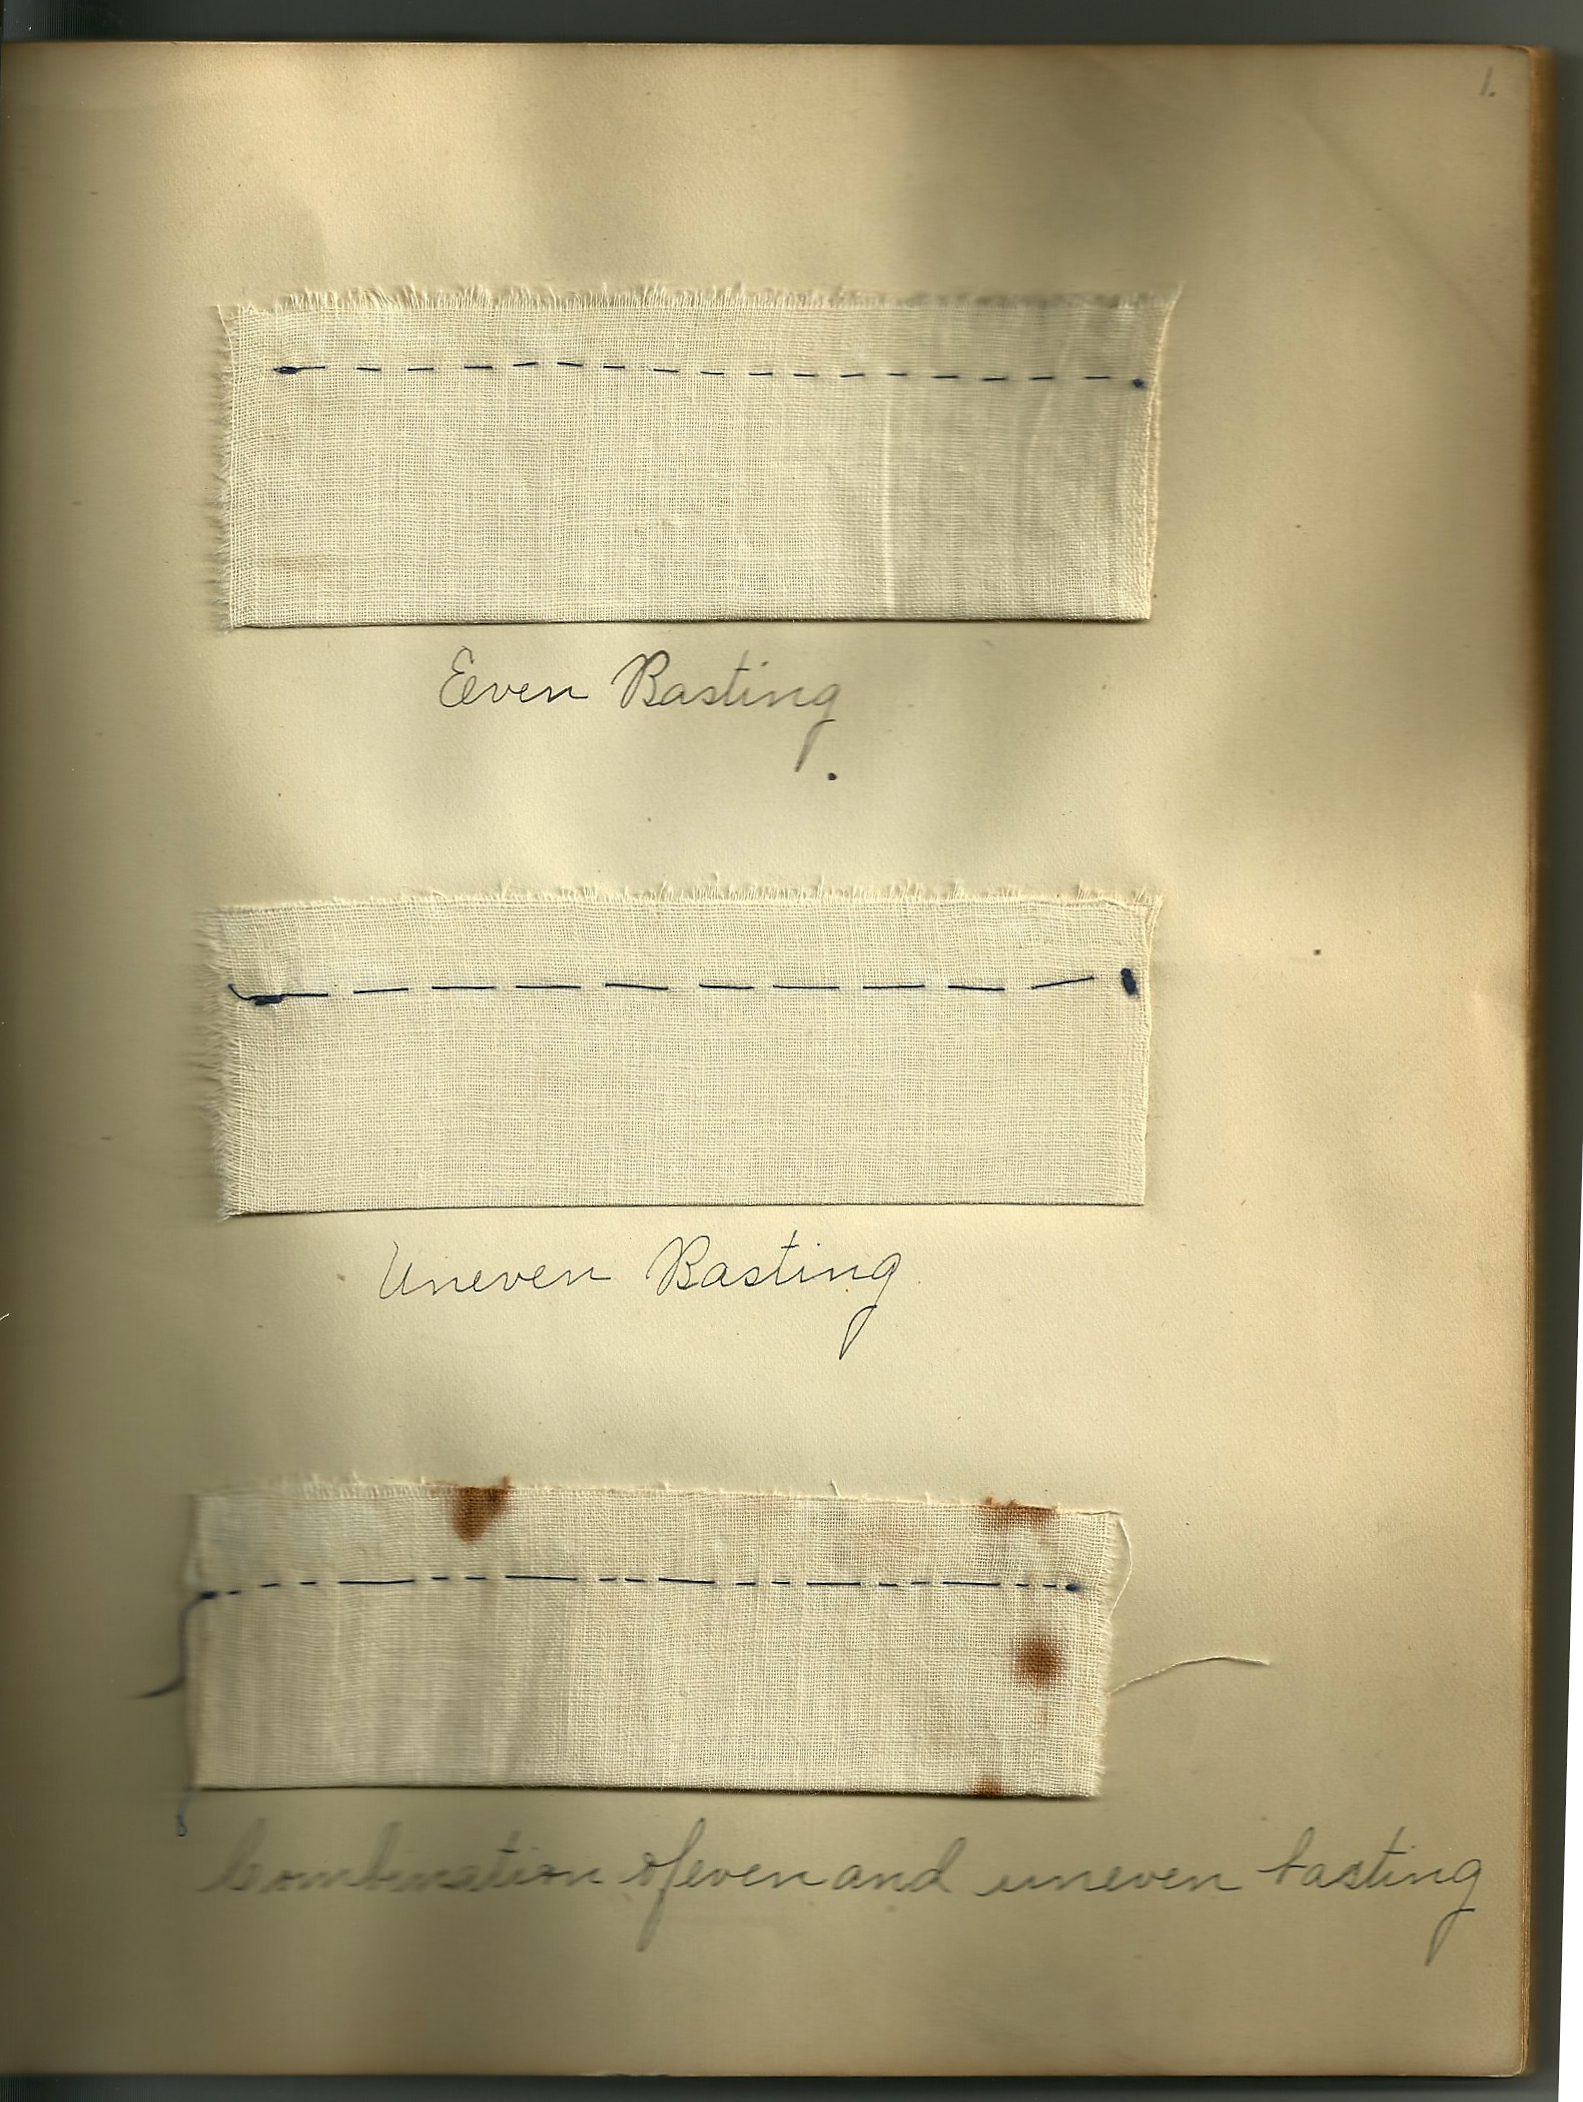 1.
Eeven Basting
.
Uneven Basting
Combination of even and uneven basting